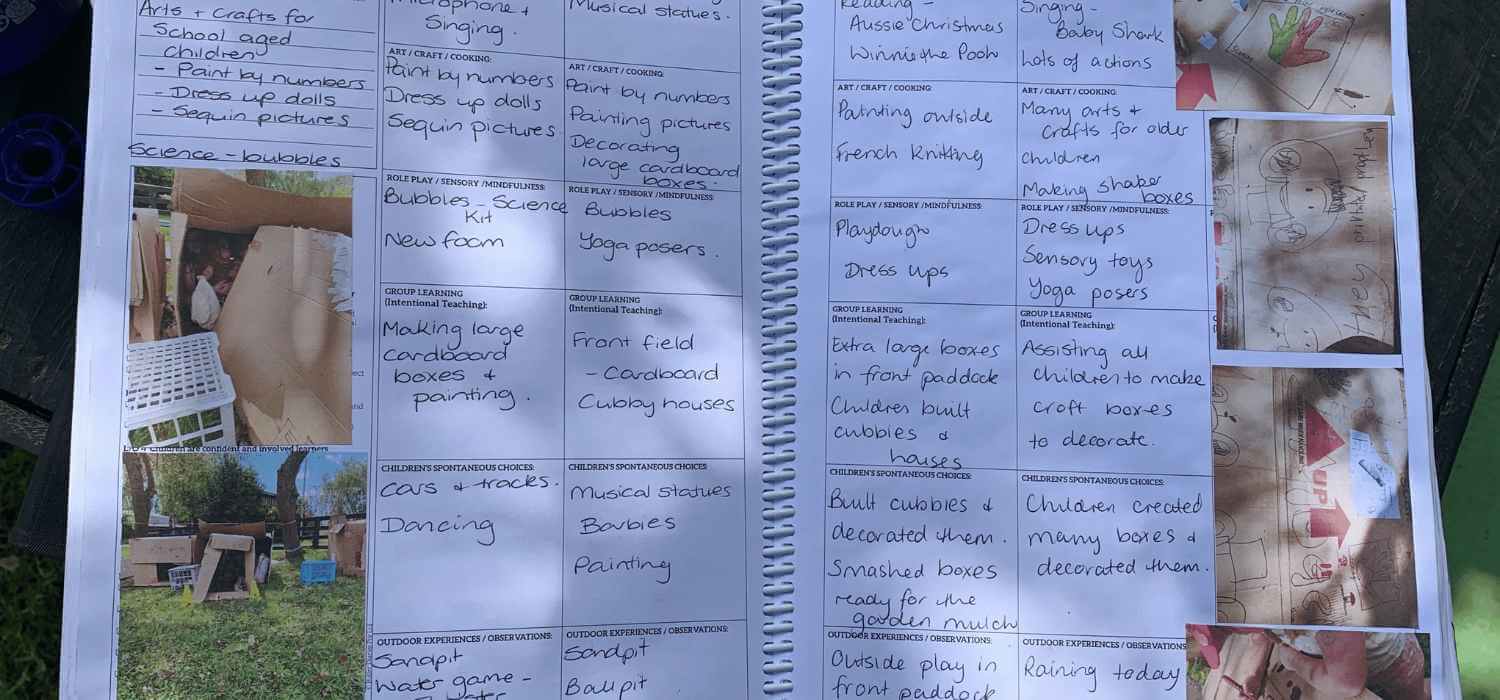 Arts + Crafts for
School aged
Children
- Paint by numbers
- Dress up dolls
- Sequin pictures
Science - bubbles
LO 4 Children are confident and involved learners
Microphone +
Singing.
ART / CRAFT / COOKING:
Paint by numbers
Dress up dolls
Sequin pictures
ROLE PLAY / SENSORY /MINDFULNESS:
Bubbles - Science
Kit
New foam
GROUP LEARNING
(Intentional Teaching):
Making large
cardboard
boxes &
painting.
CHILDREN'S SPONTANEOUS CHOICES:
Cars & tracks.
Dancing
OUTDOOR EXPERIENCES / OBSERVATIONS:
Sandpit
Water game -
Musical statues.
ART / CRAFT / COOKING:
Paint by numbers
Painting pictures
Decorating
large cardboard
boxes.
ROLE PLAY / SENSORY /MINDFULNESS:
Bubbles
Yoga posers.
GROUP LEARNING
(Intentional Teaching):
Front field
- Cardboard
Cubby houses
CHILDREN'S SPONTANEOUS CHOICES:
Musical statues
Barbies
Painting
OUTDOOR EXPERIENCES / OBSERVATIONS:
Sandpit
Ball pit
Reading -
Aussie Christmas
Winnie the Pooh
ART / CRAFT / COOKING:
Painting outside
French Knitting
ROLE PLAY / SENSORY /MINDFULNESS:
Playdough
Dress ups
GROUP LEARNING
(Intentional Teaching):
Extra large boxes
in front paddock
Children built
cubbies &
houses
CHILDREN'S SPONTANEOUS CHOICES:
Built cubbies &
decorated them.
Smashed boxes
ready for the
garden mulch
OUTDOOR EXPERIENCES / OBSERVATIONS:
Outside play in
front paddock
Singing -
Baby Shark
Lots of actions
ART / CRAFT / COOKING:
Many arts &
crafts for older
children
Making shaker
boxes
ROLE PLAY / SENSORY /MINDFULNESS:
Dress ups
Sensory toys
Yoga posers
GROUP LEARNING
(Intentional Teaching):
Assisting all
children to make
croft boxes
to decorate.
CHILDREN'S SPONTANEOUS CHOICES:
Children created
many boxes &
decorated them.
OUTDOOR EXPERIENCES / OBSERVATIONS:
Raining today
UP